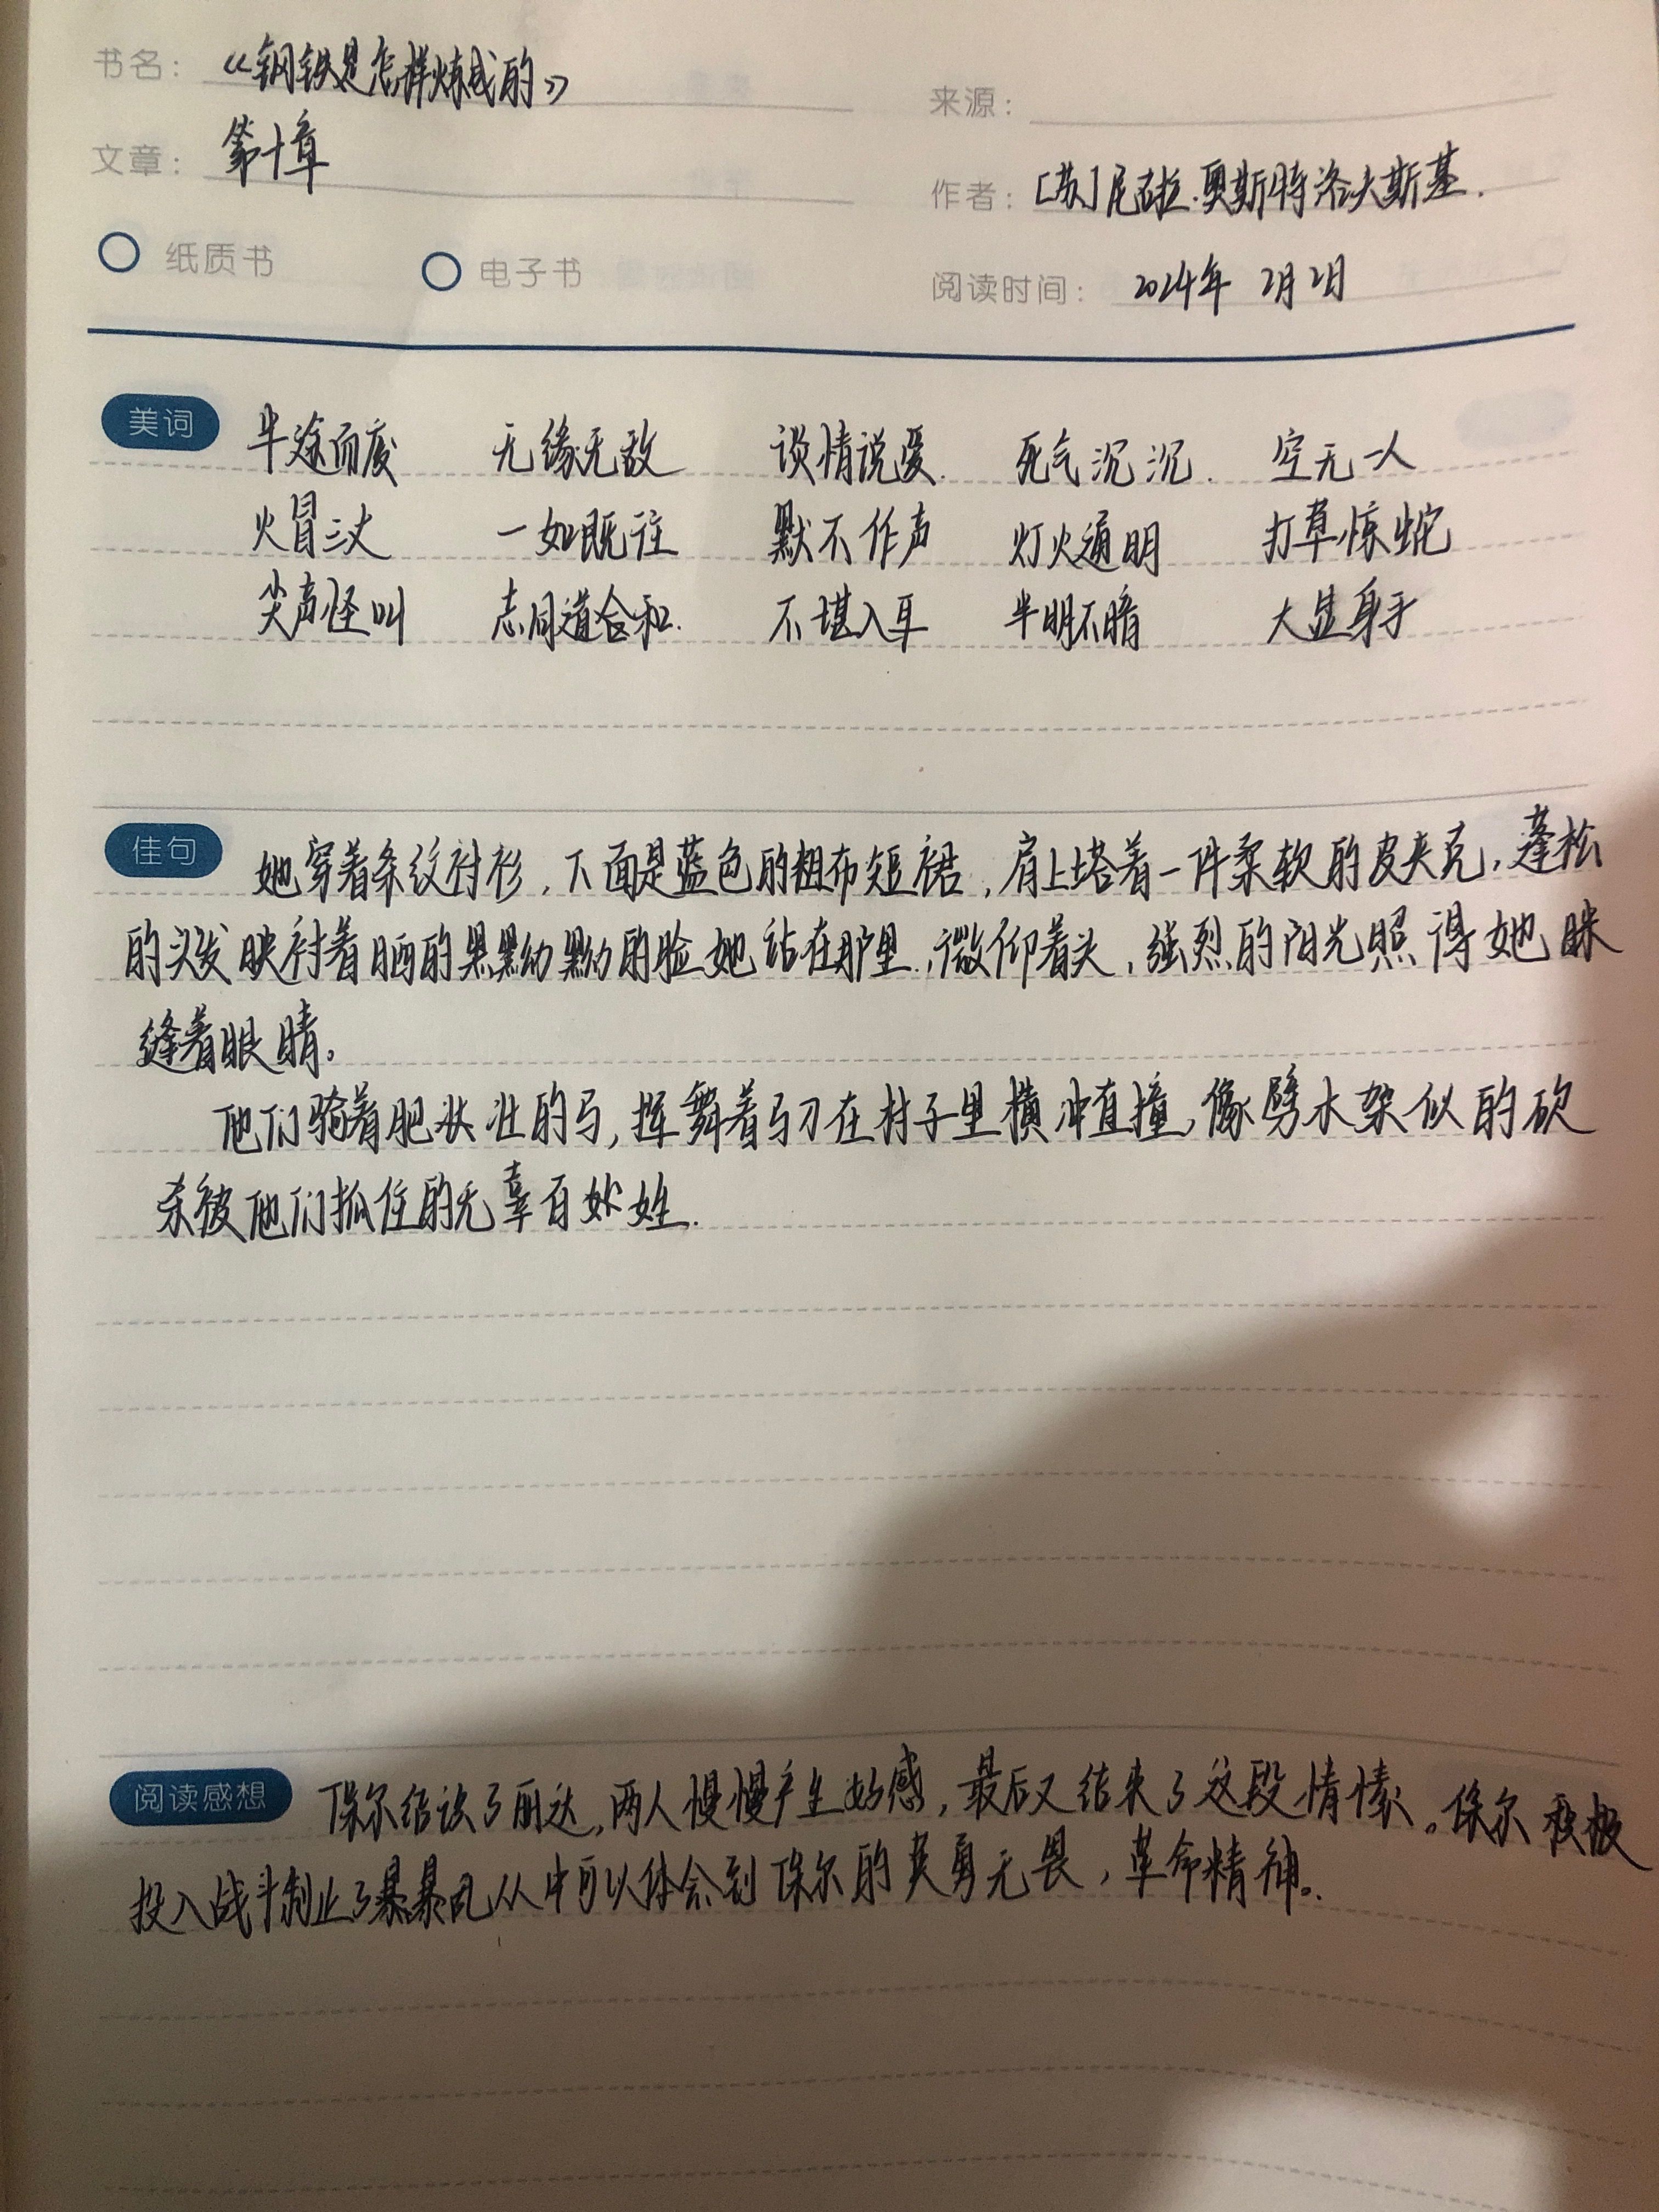 书名： 《钢铁是怎样炼成的》
来源：
文章： 第十章
作者： [苏]尼古拉·奥斯特洛夫斯基.
纸质书 电子书
阅读时间： 2024年 2月2日
美词 半途而废 无缘无故 谈情说爱. 死气沉沉. 空无一人
火冒三丈 一如既往 默不作声 灯火通明 打草惊蛇
尖声怪叫 志同道合和. 不堪入耳 半明不暗 大显身手
佳句 她穿着条纹衬衫，下面是蓝色的粗布短裙，肩上塔着一件柔软的皮夹克，蓬松
的头发映衬着晒的黑黝黝的脸她站在那里，微仰着头，强烈的阳光照得她眯
缝着眼睛。
他们骑着肥状壮的马，挥舞着马刀在村子里横冲直撞，像劈木架似的砍
杀被他们抓住的无辜百姓.
阅读感想 保尔结识了丽达，两人慢慢产生好感，最后又结束了这段情愫。保尔积极
投入战斗制止了暴暴乱从中可以体会到保尔的英勇无畏，革命精神。